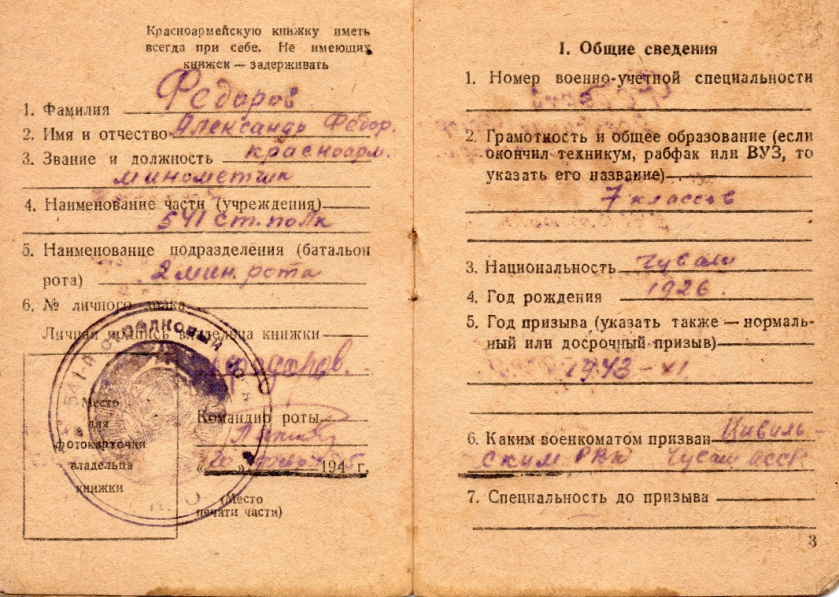 Красноармейскую книжку иметь
всегда при себе. Не имеющих
книжек — задерживать
1. Фамилия Федоров
2. Имя и отчество Александр Федор.
3. Звание и должность красноарм.
минометчик
4. Наименование части (учреждения)
541 ст. полк
5. Наименование подразделения (батальон
рота) 2 мин. рота
6. № личного знака
Личная подпись владельца книжки
Федоров.
Место
для
фотокарточки
владельца
книжки
Командир роты
„ “ 194 г.
(Место
печати части)
541-й СТРЕЛКОВЫЙ
I. Общие сведения
1. Номер военно-учетной специальности
2. Грамотность и общее образование (если
окончил техникум, рабфак или ВУЗ, то
указать его название)
7 классов
3. Национальность чуваш
4. Год рождения 1926.
5. Год призыва (указать также — нормаль-
ный или досрочный призыв)
1943 – XI
6. Каким военкоматом призван Цивиль-
ским РВК Чуваш АССР
7. Специальность до призыва
3